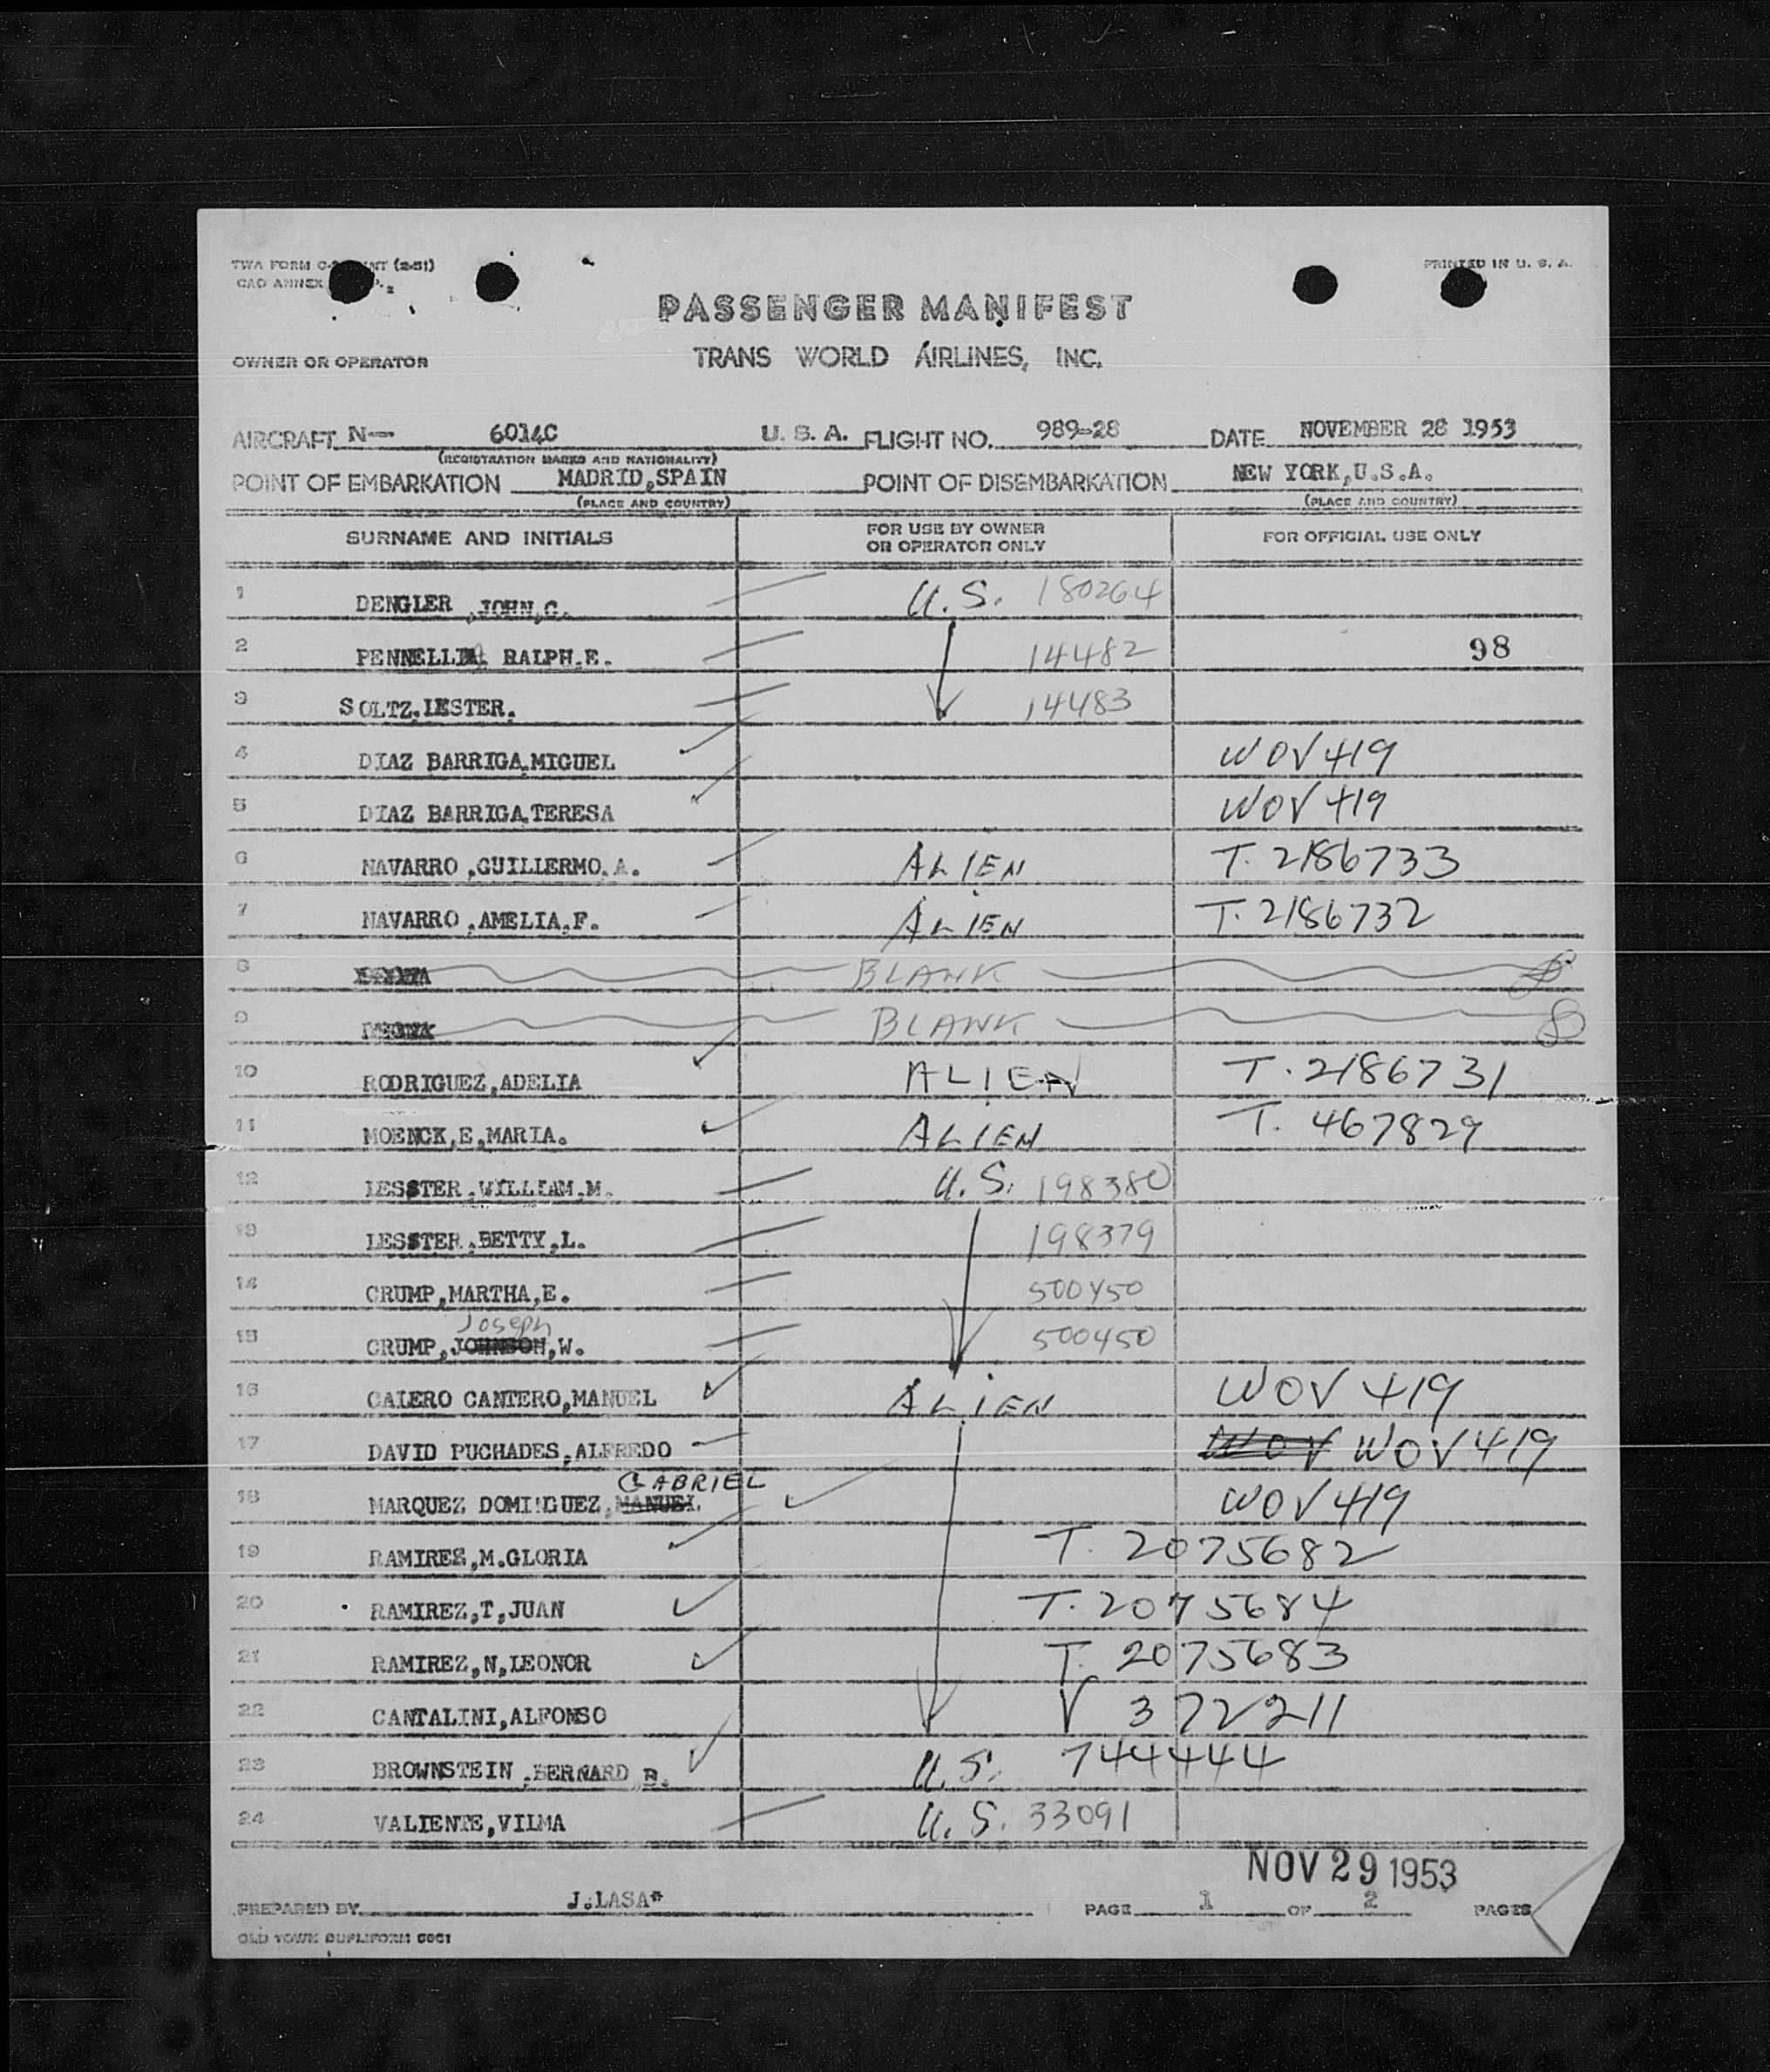 TWA FORM C- INT (2-51)
PRINTED IN U. S. A.
CAO ANNEX P. 2
PASSENGER MANIFEST
OWNER OR OPERATOR
TRANS WORLD AIRLINES, INC.
AIRCRAFT N— 6014C U. S. A. FLIGHT NO. 989-28 DATE NOVEMBER 28 1953
(REGISTRATION MARKS AND NATIONALITY)
POINT OF EMBARKATION MADRID,SPAIN POINT OF DISEMBARKATION NEW YORK,U.S.A.
(PLACE AND COUNTRY) (PLACE AND COUNTRY)
SURNAME AND INITIALS FOR USE BY OWNER OR OPERATOR ONLY FOR OFFICIAL USE ONLY
1 DENGLER ,JOHN,C. U.S. 180264
2 RALPH.E. 14482 98
3 SOLTZ.LESTER. 14483
4 DIAZ BARRIGA,MIGUEL WOV 419
5 DIAZ BARRIGA,TERESA WOV 419
6 NAVARRO ,GUILLERMO.A. ALIEN T. 2186733
7 NAVARRO ,AMELIA,F. ALIEN T. 2186732
8 BLANK
9 BLANK
10 RODRIGUEZ,ADELIA ALIEN T. 2186731
11 MOENCK,E,MARIA. ALIEN T. 467829
12 LESSTER,WILLIAM.M. U.S. 198380
13 LESSTER,BETTY,L. 198379
14 CRUMP,MARTHA,E. 500450
Joseph
15 CRUMP,JOHNSON,W. 500450
16 CALERO CANTERO,MANUEL ALIEN WOV 419
17 DAVID PUCHADES,ALFREDO WOV WOV 419
GABRIEL
18 MARQUEZ DOMINGUEZ,MANUEL WOV 419
19 RAMIREZ,M.GLORIA T. 2075682
20 RAMIREZ,T,JUAN T. 2075684
21 RAMIREZ,N,LEONOR T. 2075683
22 CANTALINI,ALFONSO V 372211
23 BROWNSTEIN ,BERNARD B. U.S. 744444
24 VALIENTE,VILMA U.S. 33091
NOV 29 1953
PREPARED BY J.LASA* PAGE 1 OF 2 PAGES
OLD TOWN DUPLIFORM